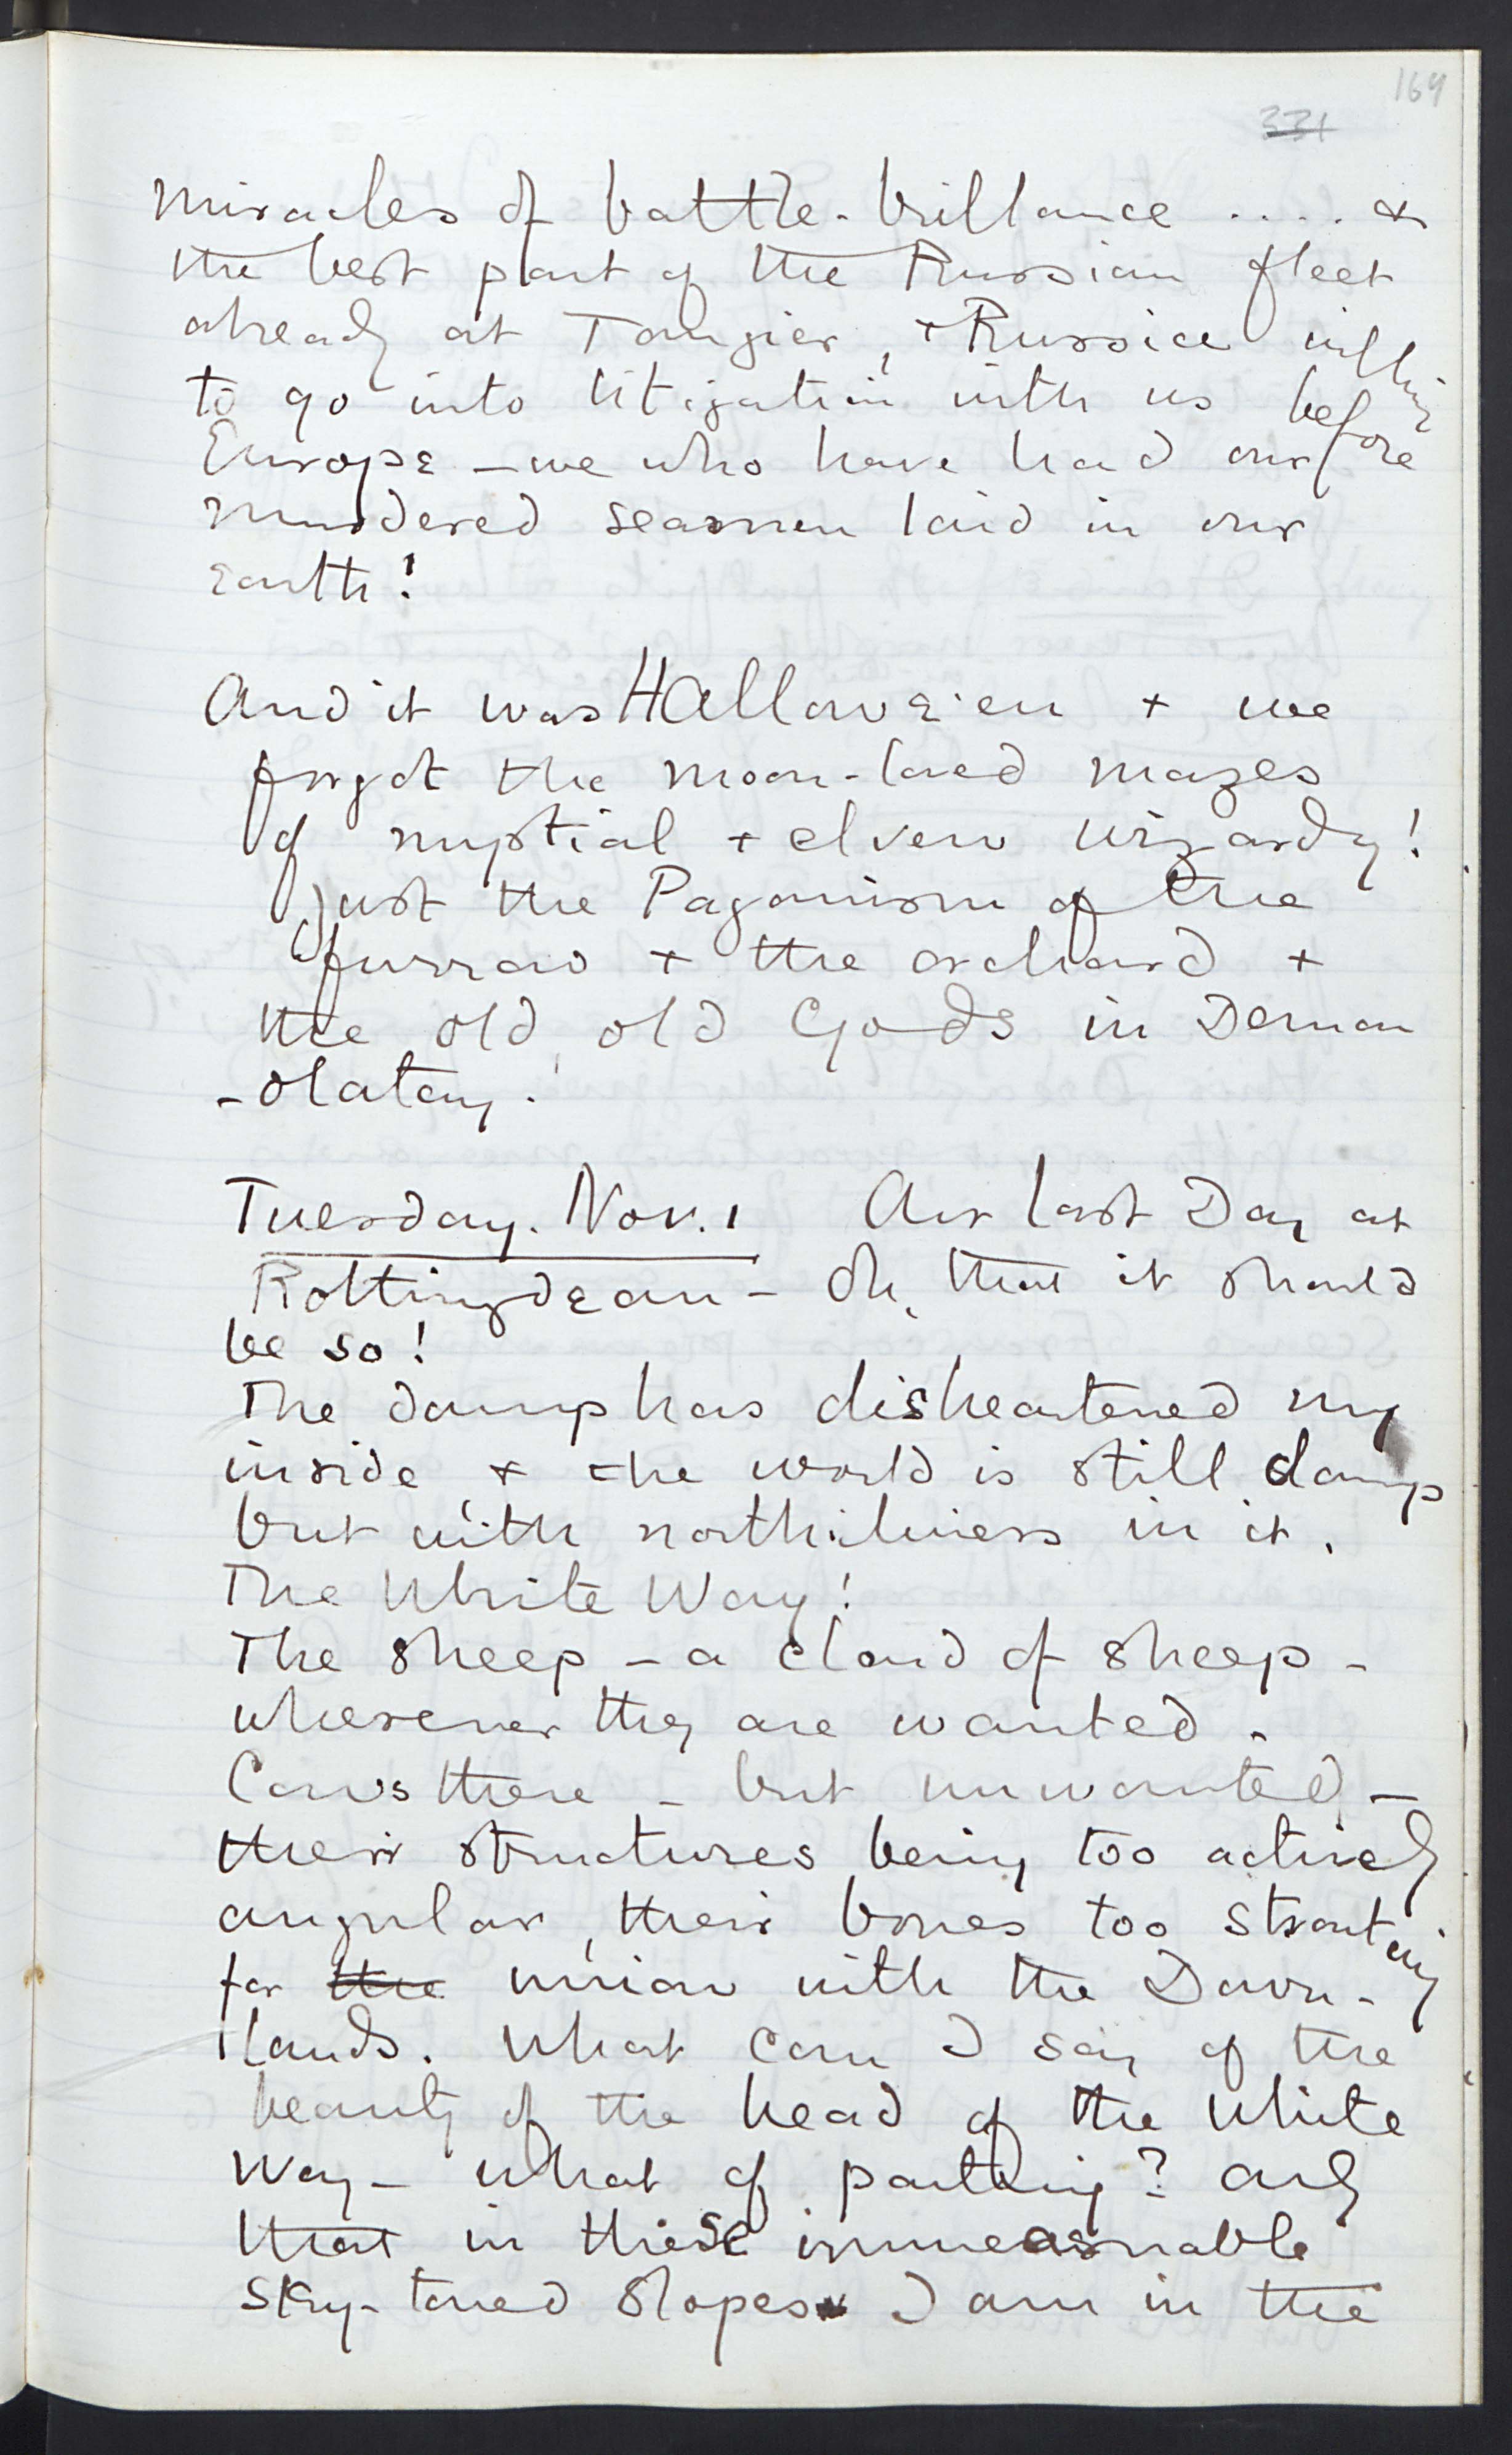 164
331
miracles of battle-brillance .... &
the best part of the Russian fleet
already at Tangier, + Russia willing
to go into litigation with us before
Europe – we who have had our
murdered seamen laid in our
earth!
And it was Hallowe'en + we
forgot the moon-laved mazes
of nuptial + elven wizardy!
Just the Paganism of the
furrow + the orchard +
the old, old Gods in Demon
-olatory.
Tuesday. Nov. 1 Our last Day at
Rottingdean – Oh, that it should
be so!
The damp has disheartened my
inside & the world is still damp
but with northiliness in it.
The White Way!
The sheep – a cloud of sheep –
wherever they are wanted.
Cows there – but unwanted –
their structures being too actively
angular, their bones too straitening
for the union with the Down-
lands. What can I say of the
beauty of the head of the White
Way – what of parting? Only
that in these immeasurable
sky-toned slopes I am in the